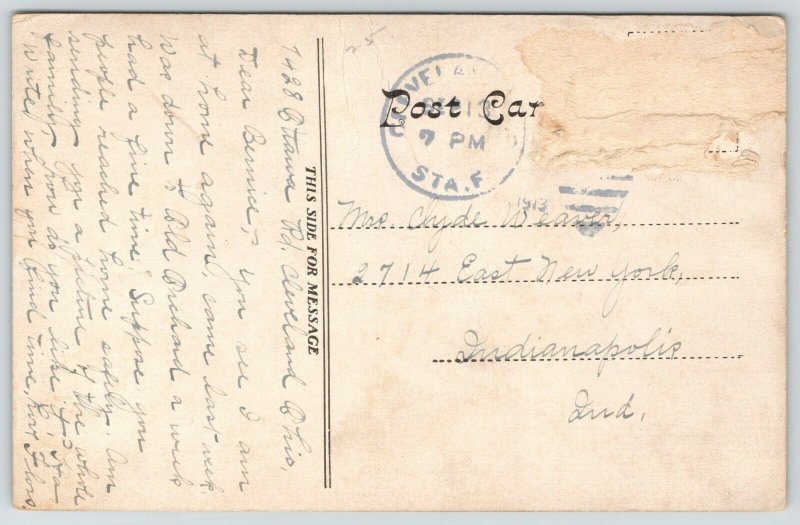 7428 Ottawa Rd. Cleveland Ohio,
Dear Bernice, – You see I am
at home again, came last week.
Was down to Old Orchard a week
had a fine time. Suppose you
people reached home safely. Am
sending you a picture of the whole
family, how do you like it,
Write when you find time,
THIS SIDE FOR MESSAGE
25
Post Car
CLEVELAND
7 PM
STA. F
1913
Mrs. Clyde Weaver,
2714 East New York,
Indianapolis
Ind.